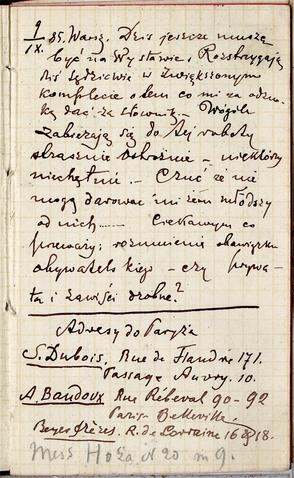 9/IX. 85. Warsz. Dziś jeszcze muszę
być na Wystawie. Rozstrzygają
dziś sędziowie w zwiększonym
komplecie o tem co mi za odzna-
kę dać za słownik. – Wogóle
zabierają się do tej roboty
strasznie ostrożnie – niektórzy
niechętnie – Czuć że nie
mogą darować mi żem młodszy
od nich...... Ciekawym co
przeważy: rozumienie obowiązku
obywatelskiego – czy prywa-
ta i zawiści drobne?
Adresy do Paryża
S. Dubois, Rue de Flandre 171.
Passage Auvry. 10.
A. Baudoux Rue Rébeval 90-92
Paris Belleville
Beyer frères. R. de Lorraine 16 & 18.
Hoża N 20 m 9.